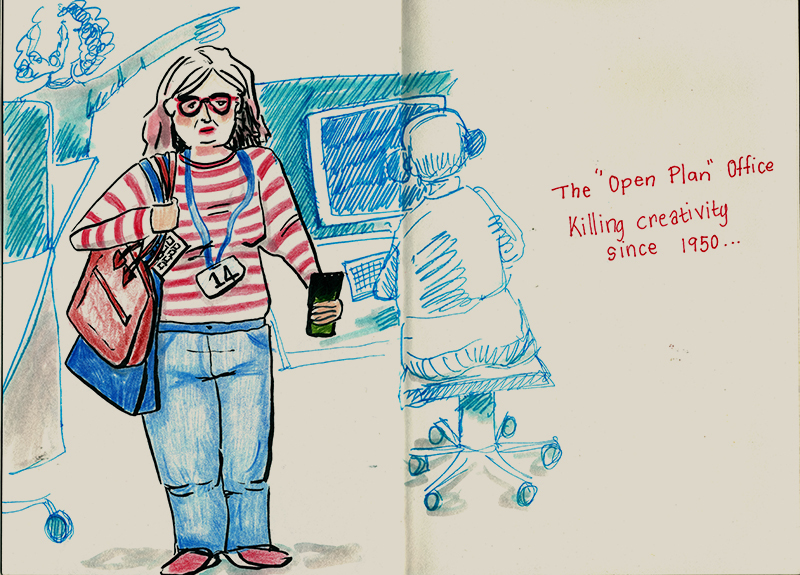 14
The "Open Plan" Office
Killing creativity
since 1950...